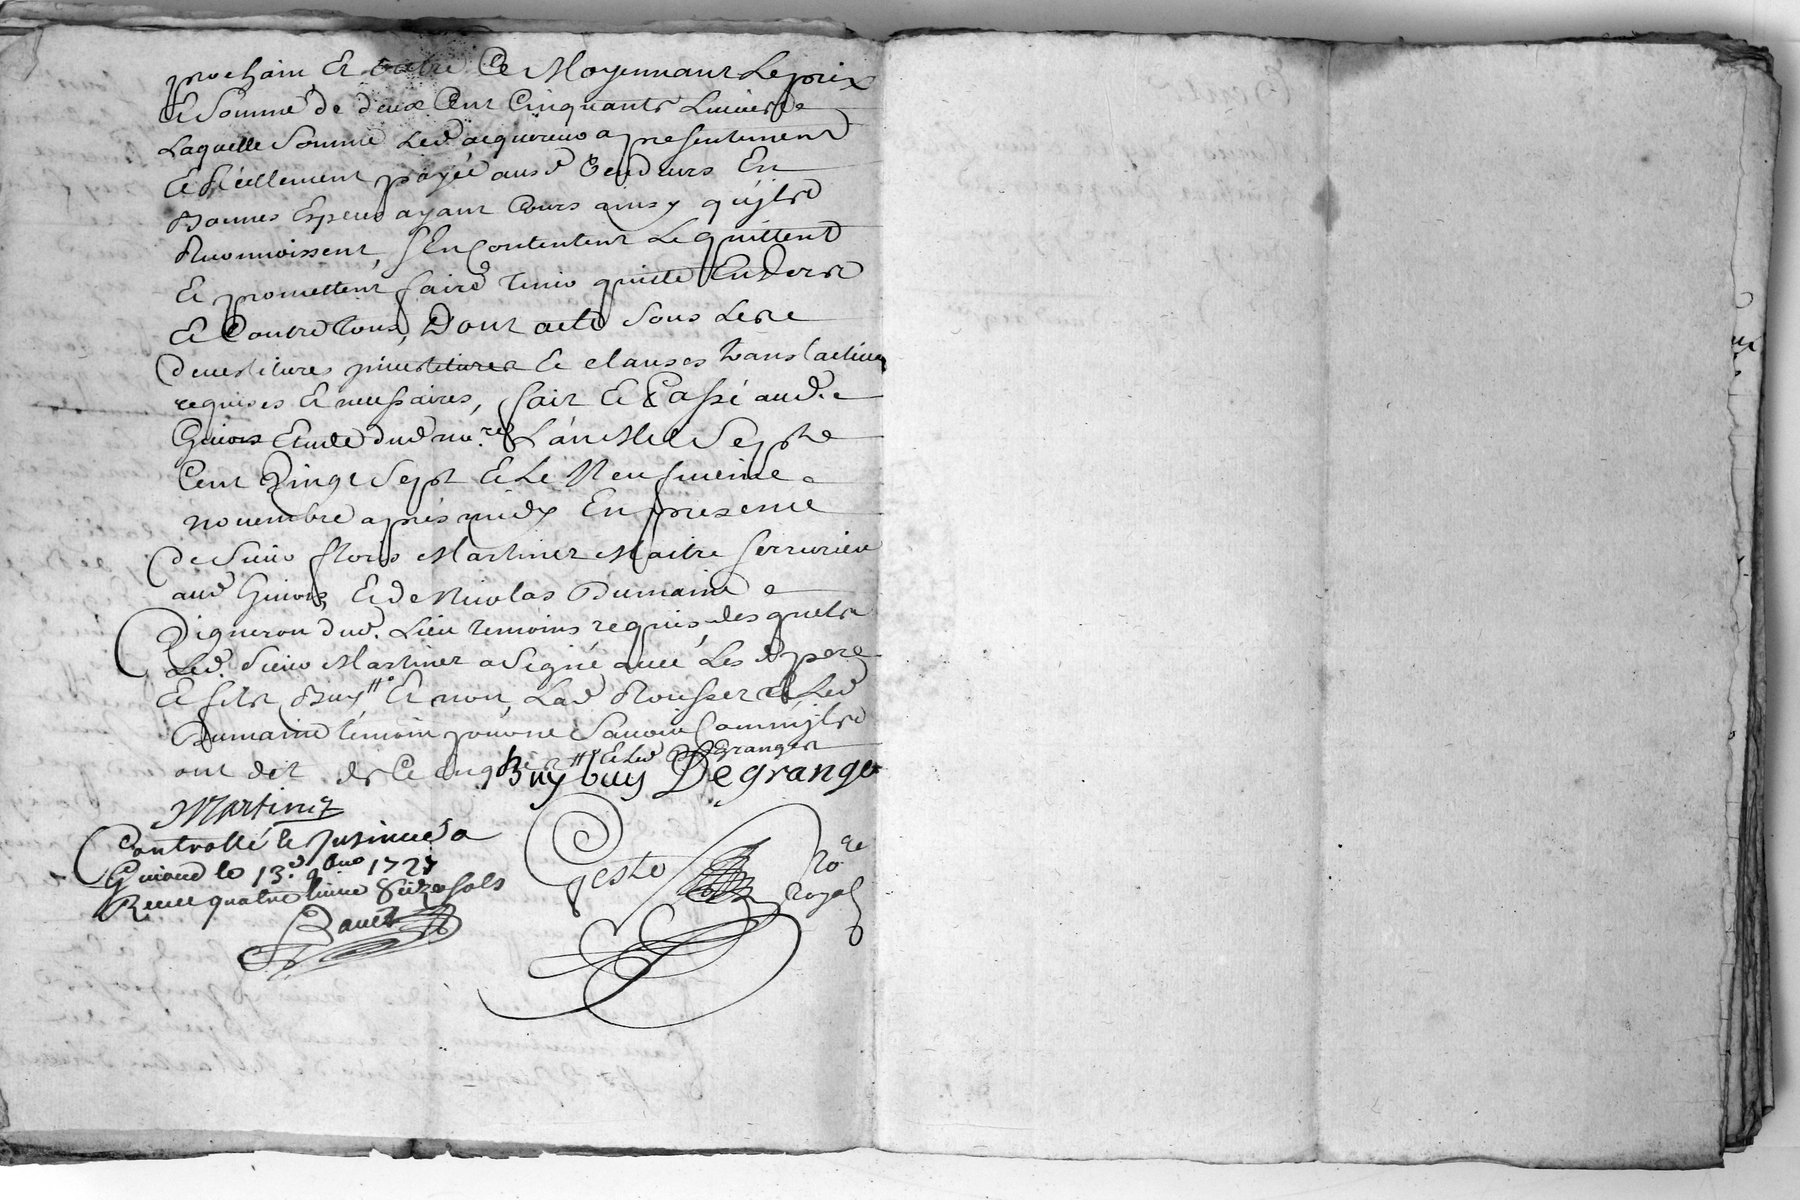 prochain Et Ce Moyennant Le prix
Et Somme de deux Cent Cinquante Livres
Laquelle Somme Led acquereur a presentement
Et Reellement payée ausd Vendeurs En
Bonnes Especes ayant Cours ainsy qu'jls
Reconnoissent, s'En Contentent Le quittent
Et promettent faire tenir quitte Envers
Et Contre tous, Dont acte Sous Les
devestitures jnvestitures Et clauses translatives
requises Et necessaires, fait Et Passé aud.
Givors Etude dud no.re L'an Mil Sept
Cent Vingt Sept Et Le Neufvieme
novembre apres midy En presence
de Sieur Martinez Maitre serrurier
aud Givors Et de Nicolas Dumaine
Vigneron dud. Lieu temoins requis, desquels
Led. Sieur Martinez a Signé avec Les d pere
Et fils Buy Et non Lad Rousset Et Led
Dumaine témoin pour ne Savoir Comm'jls
ont dit de Ce Enquis Et Led Degranges
Buy buy Degrange
Martinez
Controllé et Insinué a
Givord le 13.e 9bre 1727
Receu quatre livre seize sols
Bauet
Teste
No.re
Royal